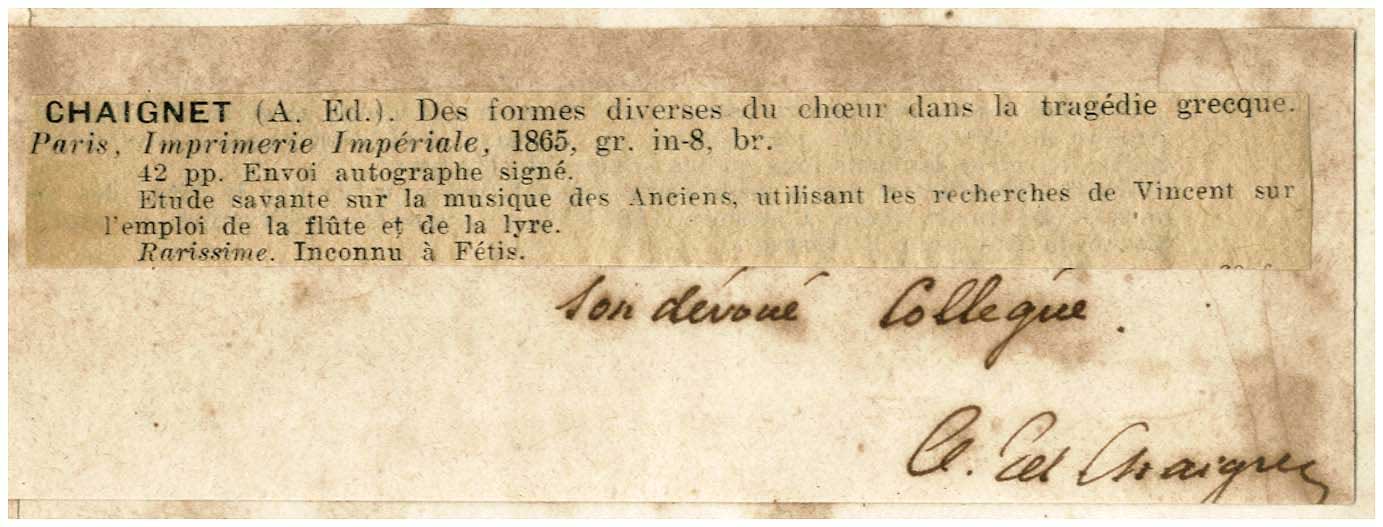 CHAIGNET (A. Ed.). Des formes diverses du chœur dans la tragédie grecque.
Paris, Imprimerie Impériale, 1865, gr. in-8, br.
42 pp. Envoi autographe signé.
Etude savante sur la musique des Anciens, utilisant les recherches de Vincent sur
l'emploi de la flûte et de la lyre.
Rarissime. Inconnu à Fétis.
son dévoué Collègue.
A. Ed Chaignet